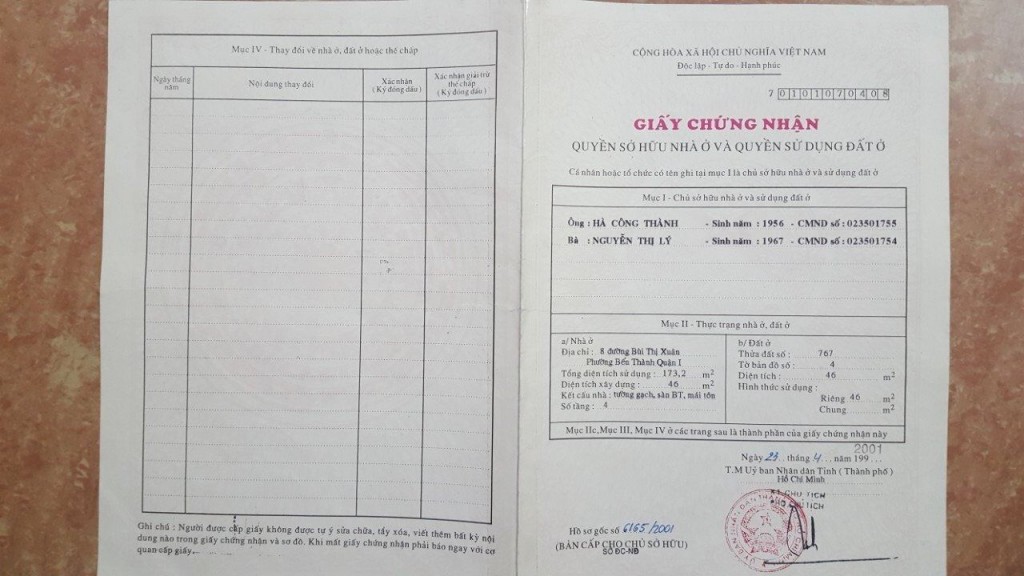 Mục IV - Thay đổi về nhà ở, đất ở hoặc thế chấp
Ngày tháng năm
Nội dung thay đổi
Xác nhận
( Ký đóng dấu )
Xác nhận giải trừ
thế chấp
( Ký đóng dấu )
Ghi chú : Người được cấp giấy không được tự ý sửa chữa, tẩy xóa, viết thêm bất kỳ nội
dung nào trong giấy chứng nhận và sơ đồ. Khi mất giấy chứng nhận phải báo ngay với cơ
quan cấp giấy.
CỘNG HÒA XÃ HỘI CHỦ NGHĨA VIỆT NAM
Độc lập - Tự do - Hạnh phúc
7 0101070408
GIẤY CHỨNG NHẬN
QUYỀN SỞ HỮU NHÀ Ở VÀ QUYỀN SỬ DỤNG ĐẤT Ở
Cá nhân hoặc tổ chức có tên ghi tại mục I là chủ sở hữu nhà ở và sử dụng đất ở
Mục I - Chủ sở hữu nhà ở và sử dụng đất ở
Ông : HÀ CÔNG THÀNH - Sinh năm : 1956 - CMND số : 023501755
Bà : NGUYỄN THỊ LÝ - Sinh năm : 1967 - CMND số : 023501754
Mục II - Thực trạng nhà ở, đất ở
a/ Nhà ở
Địa chỉ : 8 đường Bùi Thị Xuân
Phường Bến Thành Quận I
Tổng diện tích sử dụng : 173,2 m2
Diện tích xây dựng : 46 m2
Kết cấu nhà : tường gạch, sàn BT, mái tôn
Số tầng : 4
b/ Đất ở
Thửa đất số : 767
Tờ bản đồ số : 4
Diện tích : 46 m2
Hình thức sử dụng :
Riêng 46 m2
Chung m2
Mục IIc, Mục III, Mục IV ở các trang sau là thành phần của giấy chứng nhận này
2001
Ngày 23 tháng 4 năm 199...
T.M Uỷ ban Nhân dân Tỉnh ( Thành phố )
Hồ Chí Minh
CHỦ TỊCH
Hồ sơ gốc số 6165/2001
(BẢN CẤP CHO CHỦ SỞ HỮU)
SỞ ĐC-NĐ